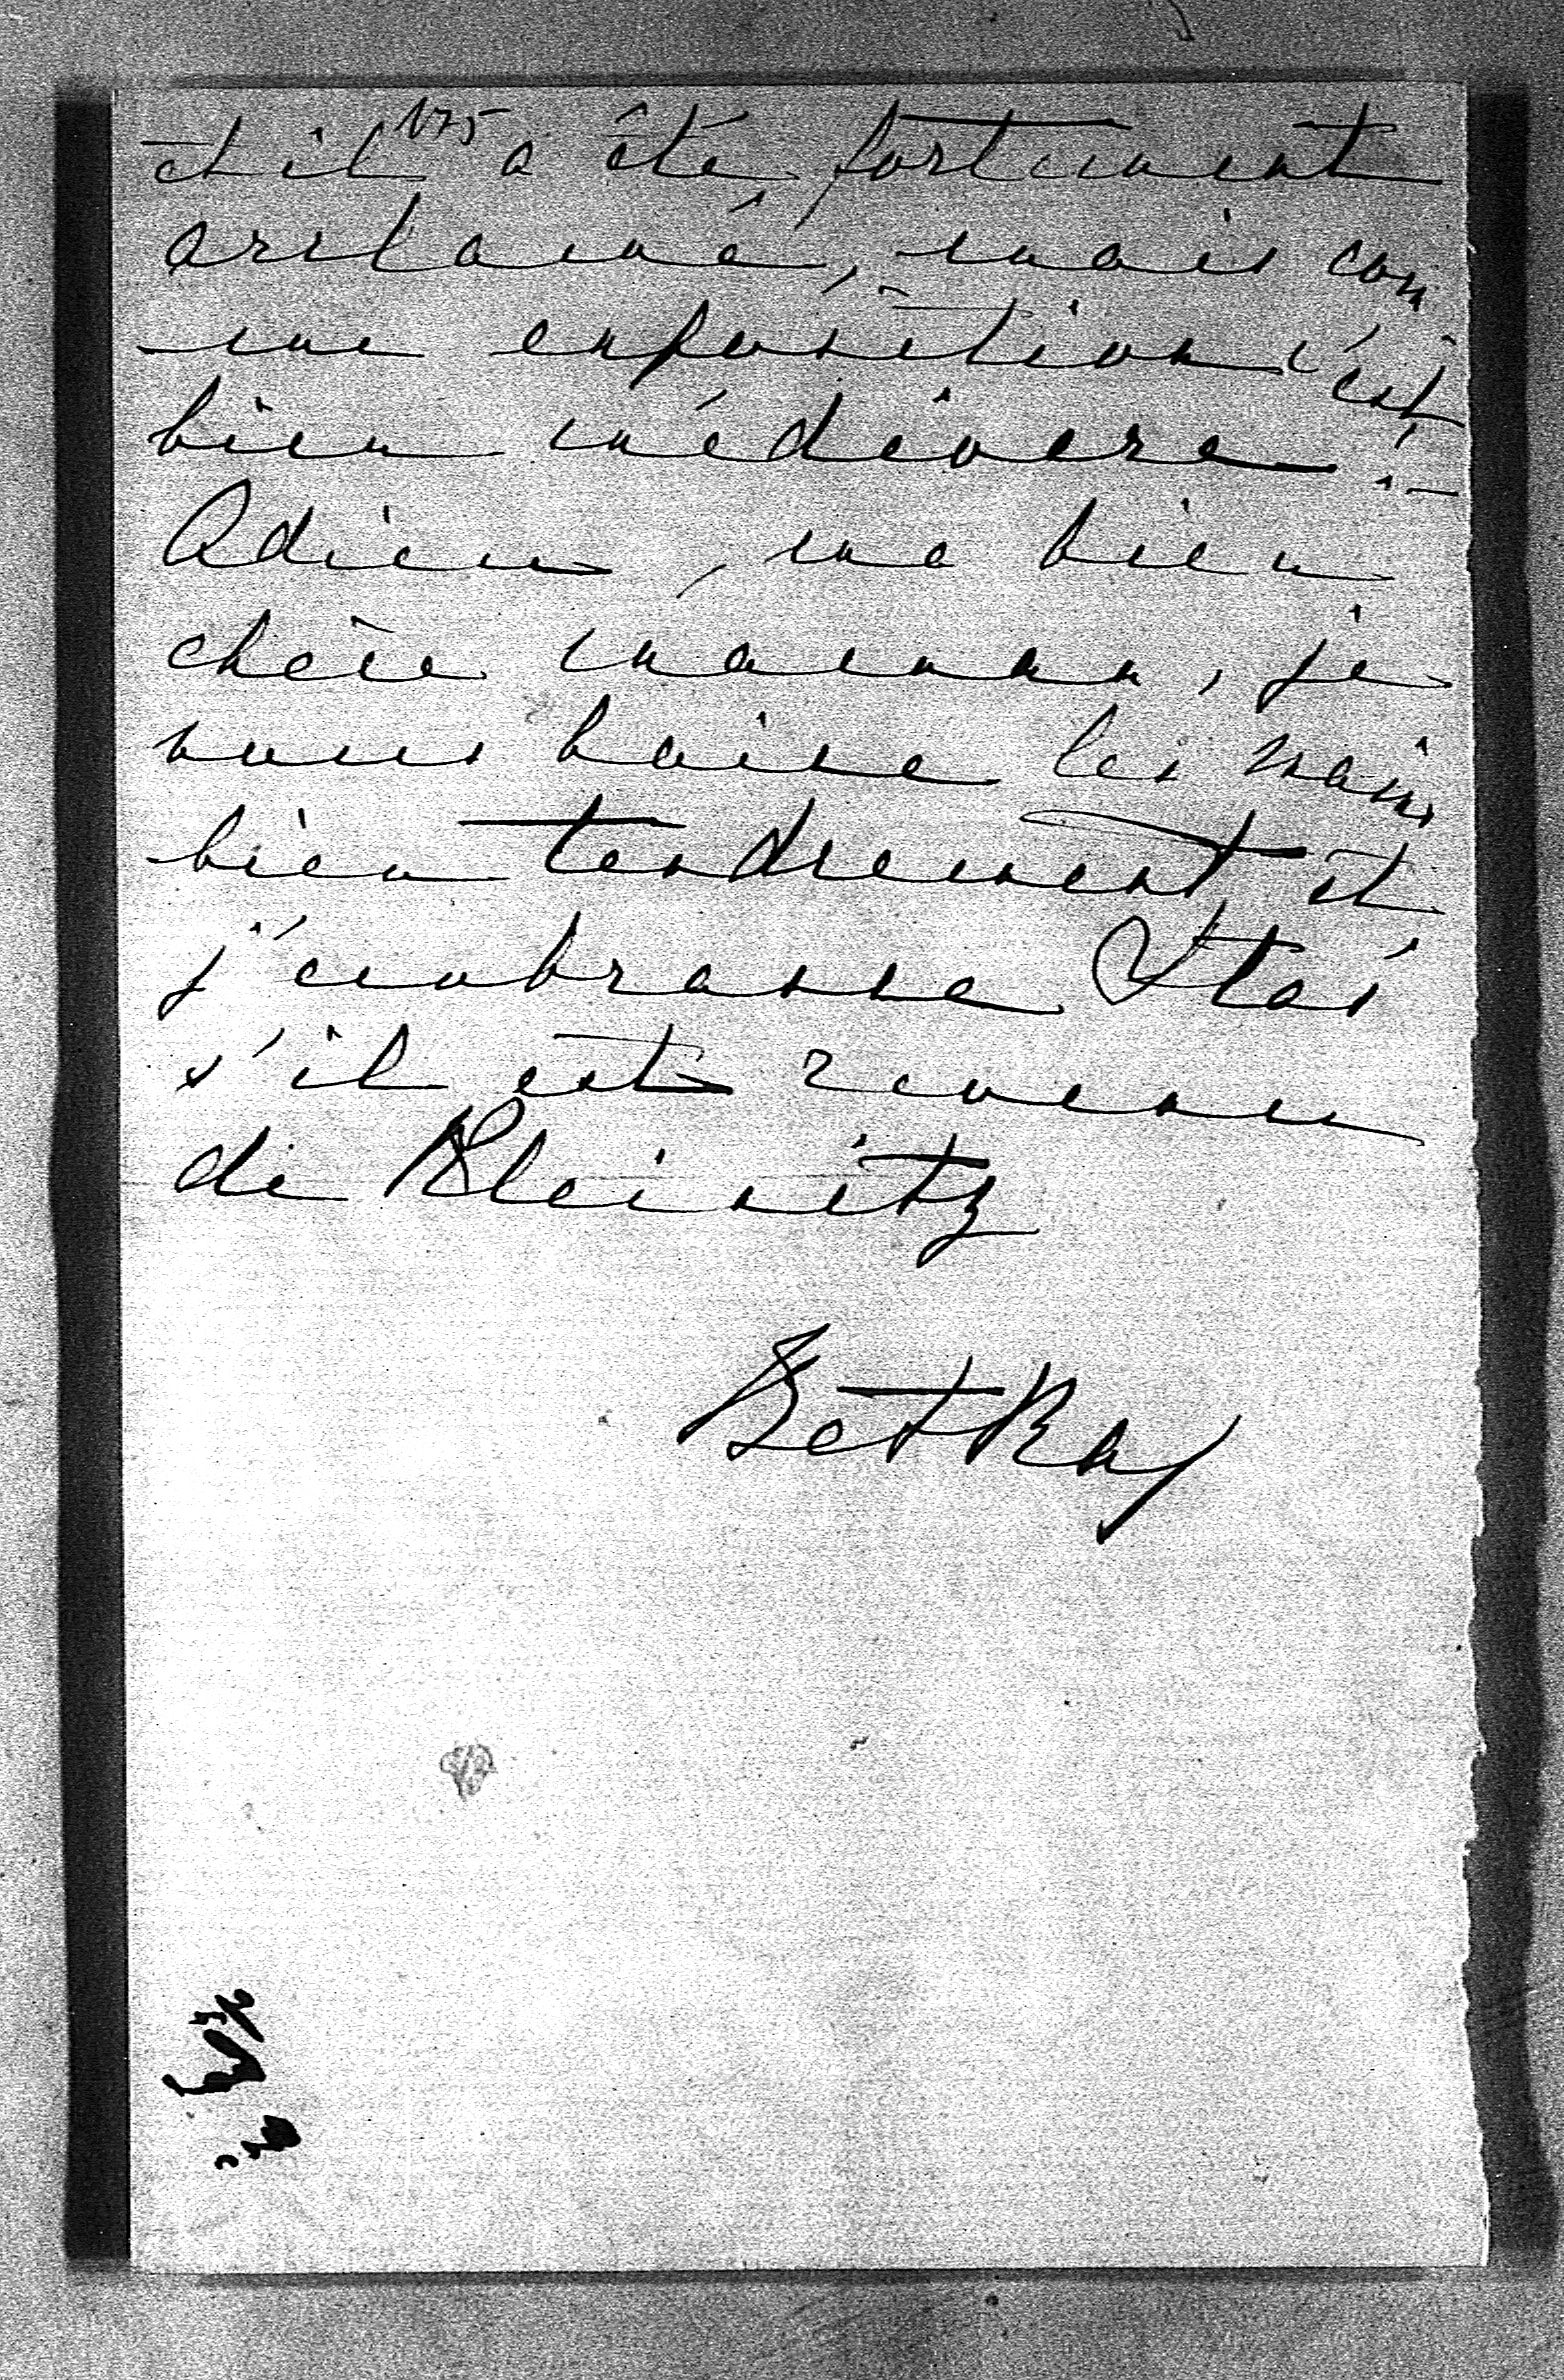 175
et il a été fortement
acclamé, mais com
me exposition c'est
bien médiocre. —
Adieu, ma bien
chère maman, je
vous baise les mains
bien tendrement et
j'embrasse Stas
s'il est revenu
de Kleinitz
Betka